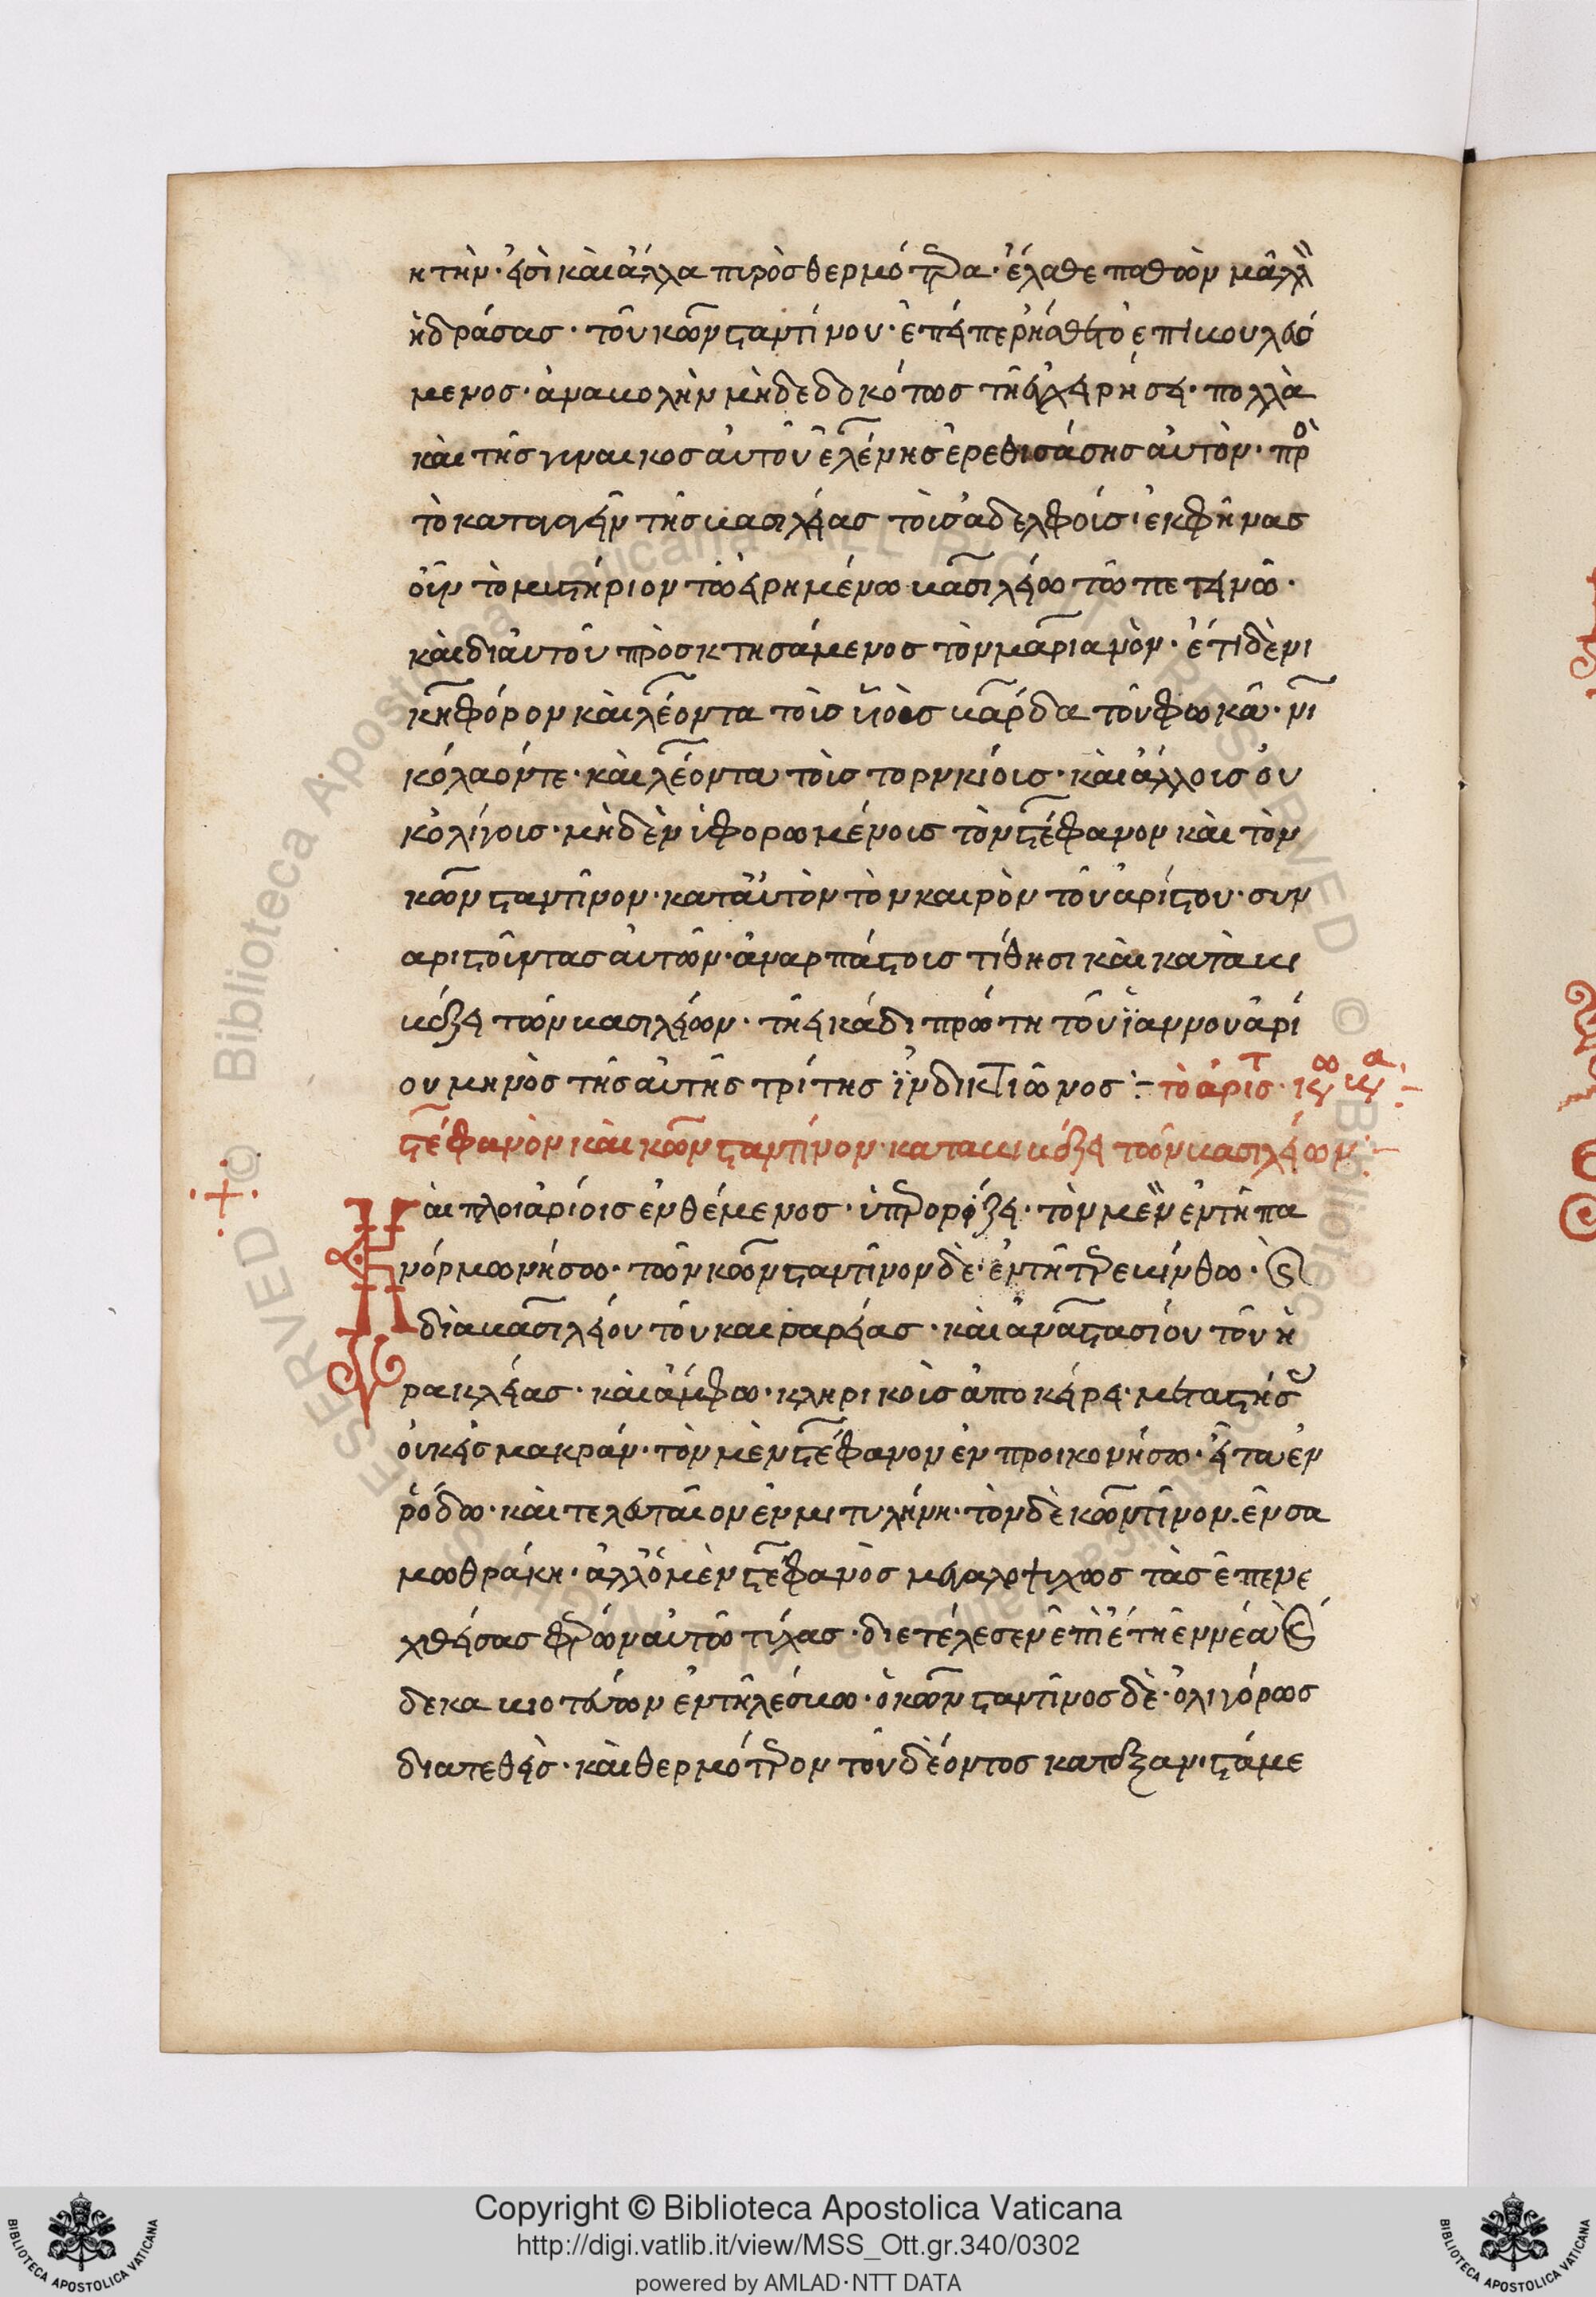 η τὴν· ἐσὶ καὶ ἄλλα πρὸς θερμότερα· ἔλαθε παθὼν μᾶλλον
ἢ δράσας· τοῦ κωνσταντίνου· ἐπείπερ ἤσθετο ἐπιβουλευό
μενος· ἀναβολὴν μὴ δεδωκότος τῇ ἐγχειρήσει· πολλὰ
καὶ τῆς γυναικὸς αὐτοῦ ἑλένης ἐρεθισάσης αὐτὸν· πρὸ
τὸ καταγαγεῖν τῆς βασιλείας τοὺς ἀδελφούς· ἐκφήνας
οὖν τὸ μυστήριον τῷ εἰρημένω βασιλείω τῷ πετεινῷ·
καὶ δι αὐτοῦ προσκτησάμενος τὸν μαριανὸν· ἔτι δὲ νι
κηφόρον καὶ λέοντα τοὺς υἱοὺς βάρδα τοῦ φωκᾶ· νι
κόλαόν τε· καὶ λέοντα τοὺς τορνκίους· καὶ ἄλλους ου
κ ὀλίγους· μηδὲν ὑφορωμένους τὸν στέφανον καὶ τὸν
κωνσταντῖνον· κατ αὐτὸν τὸν καιρὸν τοῦ ἀρίστου· συν
αριστοῦντας αὐτῶν· ἀναρπάστους τίθησι καὶ καταβι
βάζει τῶν βασιλείων· τῇ εἰκάδι πρώτη τοῦ ἰαννουαρί
ου μηνὸς τῆς αὐτῆς τρίτης ἰνδικτιῶνος :- τὸ
στέφανον καὶ κωνσταντίνον· καταβιβάζει τῶν βασιλείων:-
Καὶ πλοιαρίοις ἐνθέμενος· ὑπερορίζει· τὸν μὲν ἐν τῇ πα
νόρμω νήσω· τῶν κωνσταντῖνον δὲ· ἐν τῇ τερεβίνθω· καὶ
διὰ βασιλείου τοῦ καισαρείας· καὶ ἀναστασίου τοῦ ἡ
ρακλείας· καὶ ἄμφω· κληρικοὺς ἀποκείρει· μεταστήσας
οὐκ εἰς μακράν· τὸν μὲν στέφανον ἐν προικονήσω· εἶτα ἐν
ῥόδω· καὶ τελευταῖον ἐν μιτυλήνη· τὸν δὲ κωνσταντῖνον ἐν σα
μωθράκη· ἀλλ ὁ μὲν στέφανὸς μεγαλοψύχως τὰς ἐπενε
χθείσας φέρων αὐτῷ τύχας· διετέλεσεν ἐπὶ ἔτη ἐννέα καὶ
δεκα βιοτεύων ἐν τῇ λέσβω· ὁ κωνσταντῖνος δὲ· ὀλιγόρως
διατεθεὶς· καὶ θερμότερον τοῦ δέοντος κατεξανιστάμε
Copyright © Biblioteca Apostolica Vaticana
http://digi.vatlib.it/view/MSS_Ott.gr.340/0302
powered by AMLAD·NTT DATA